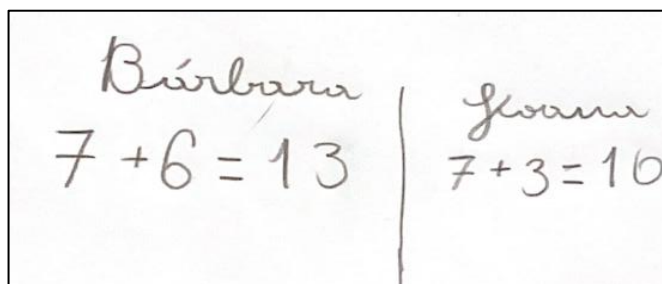 Bárbara
7 + 6 = 13
Joana
7 + 3 = 10